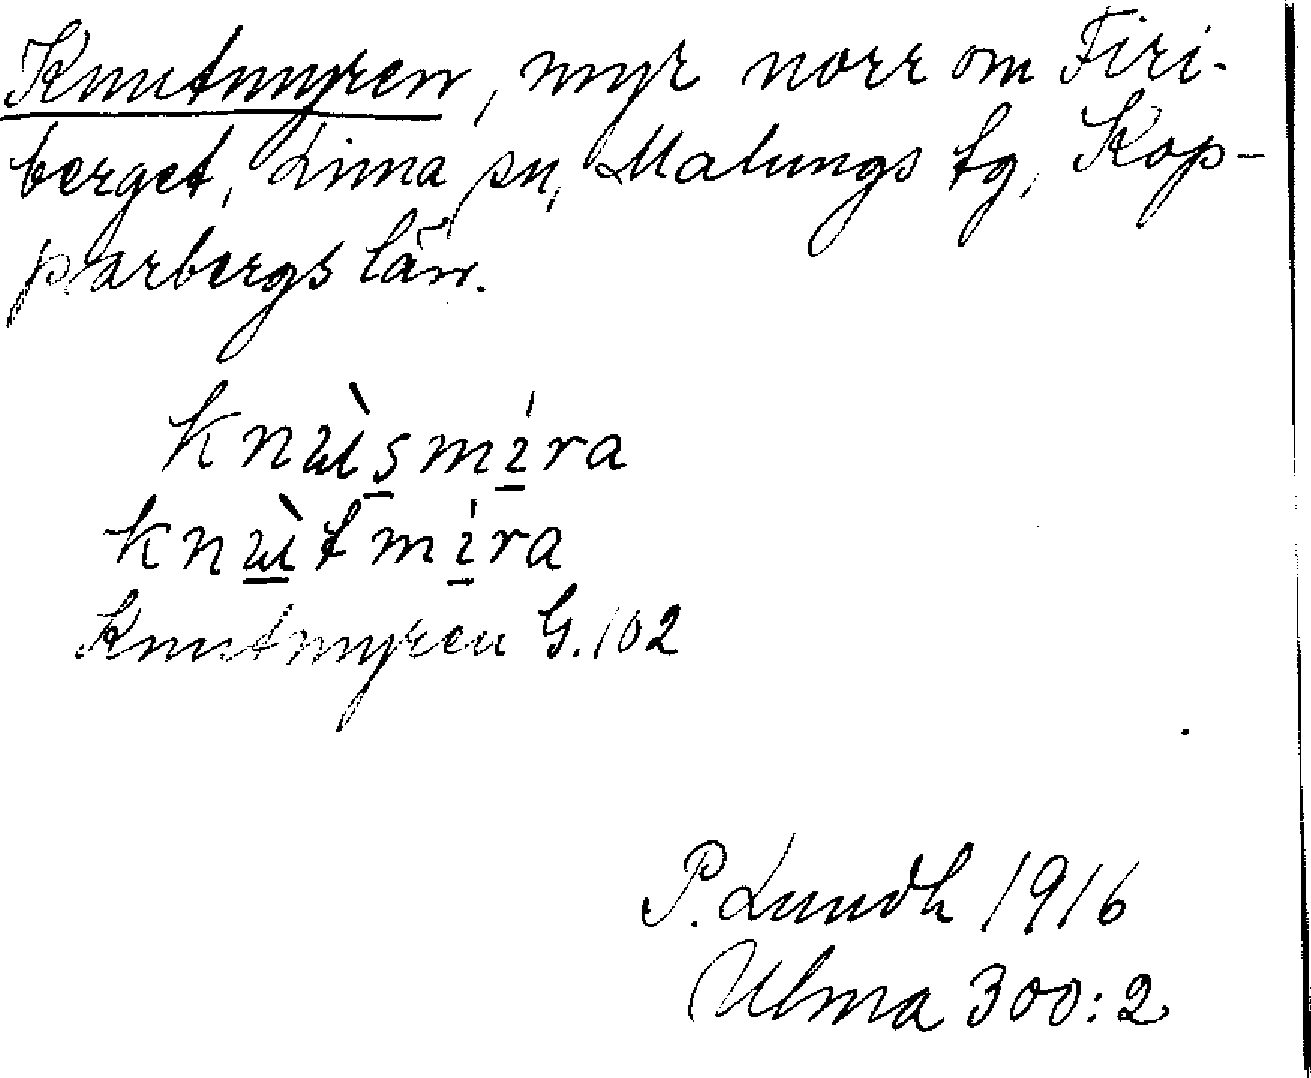 Knutmyren, myr norr om Firi-
berget, Lima sn, Malungs tg, Kop-
parbergs län.
knɯ̀s̲mí̲ra
knɯ̲̀tmí̲ra
Knutmyren G. 102
P. Lundh 1916
Ulma 300:2